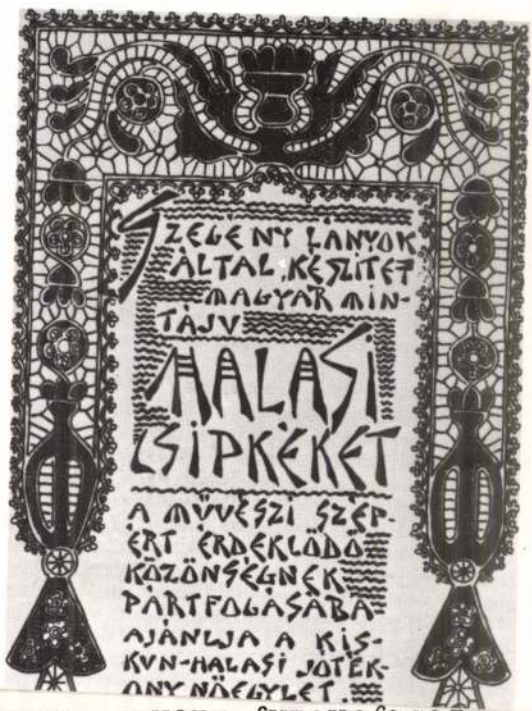 SZEGÉNY LÁNYOK
ÁLTAL KÉSZITET
MAGYAR MIN-
TÁJU
HALASI
CSIPKÉKET
A MŰVÉSZI SZÉP-
ÉRT ÉRDEKLŐDŐ
KÖZÖNSÉGNEK
PÁRTFOGÁSÁBA
AJÁNLJA A KIS-
KUN-HALASI JOTÉK-
ONY NŐEGYLET.